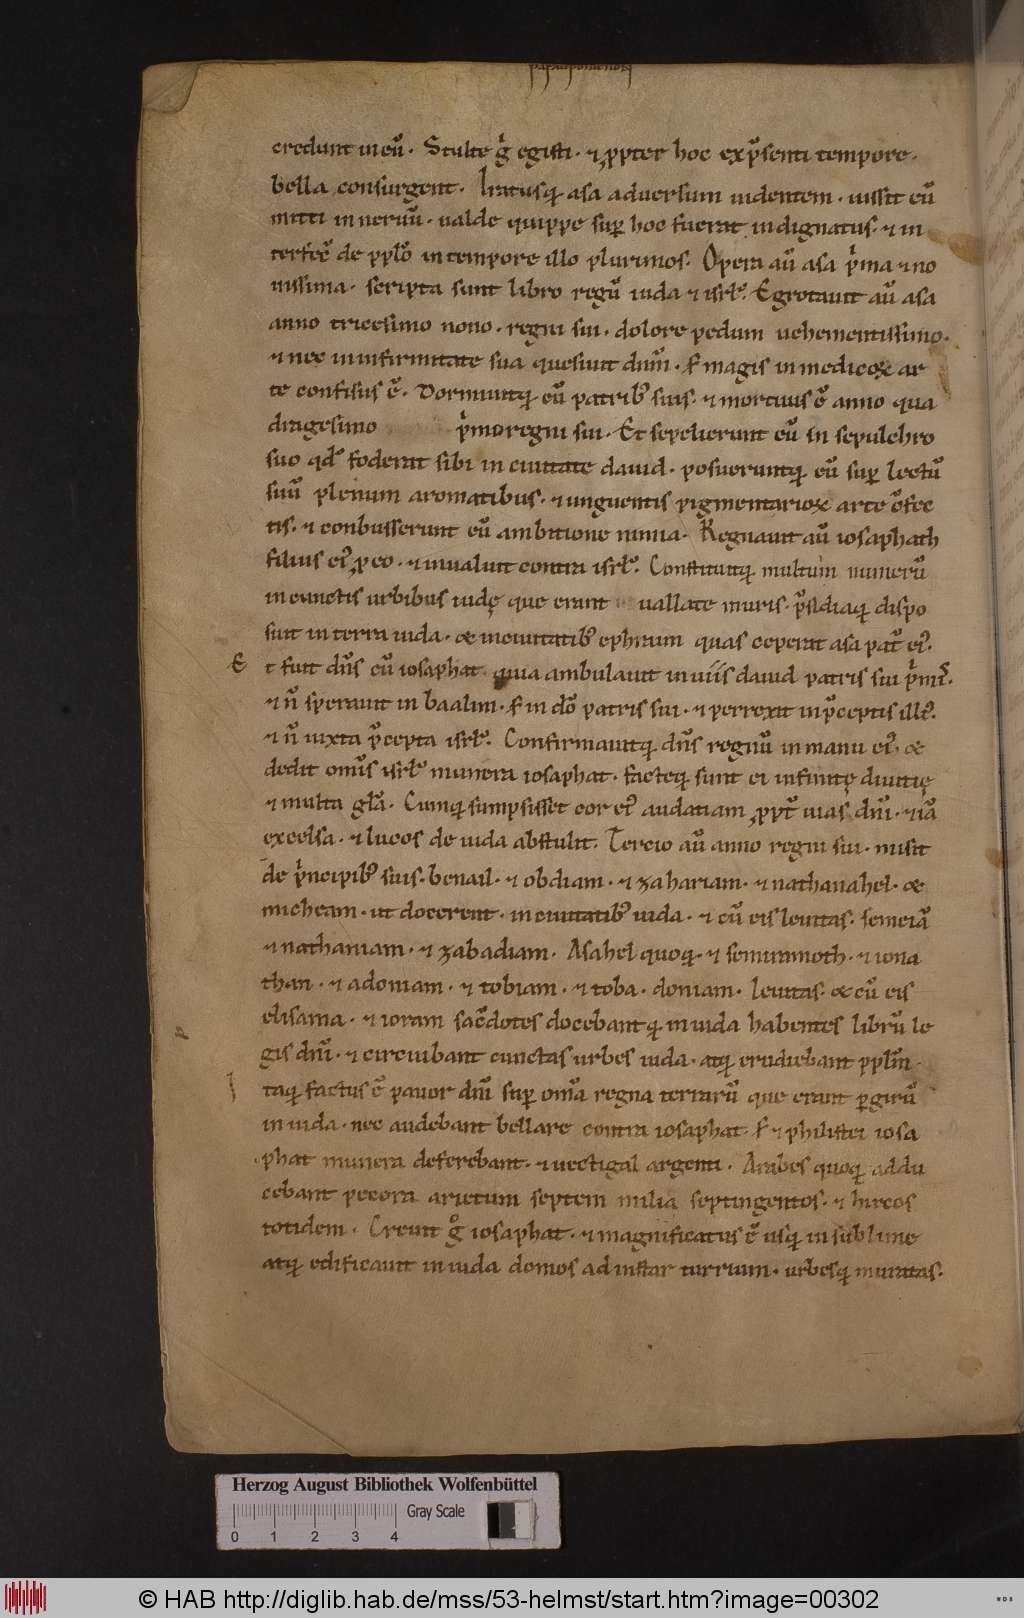 credunt in eū. Stulte g̊ egisti. ⁊ ꝓpter hoc ex p̄senti tempore.
bella consurgent. Iratusq; asa aduersum uidentem. iussit eū
mitti in neruū. ualde quippe sup̄ hoc fuerat indignatus. ⁊ in
terfec̄ de pplō in tempore illo plurimos. Opera aū asa p̄ma ⁊ no
uissima. scripta sunt libro regū iuda ⁊ isrl̄. Egrotauit aū asa
anno tricesimo nono. regni sui. dolore pedum uehementissimo.
⁊ nec in infirmitate sua quesiuit dnm̄. s; magis in medicoꝝ ar
te confisus ē. Dormiuitq; cū patrib; suis. ⁊ mortuus ē anno qua
dragesimo p̄mo regni sui. Et sepelierunt eū in sepulchro
suo qd̄ foderat sibi in ciuitate dauid. posueruntq; eū sup̄ lectū
suū plenum aromatibus. ⁊ unguentis pigmentarioꝝ arte c̄fec
tis. ⁊ conbusserunt eū ambitione nimia. Regnauit aū iosaphath
filius ei; ꝓ eo. ⁊ inualuit contra isrl̄. Constituitq; multum numerū
in cunctis urbibus iudę que erant uallate muris. p̄sidiaq; dispo
suit in terra iuda. & in ciuitatib; ephraim quas ceperat asa pat̄ ei;.
E t fuit dn̄s cū iosaphat quia ambulauit in uiis dauid patris sui p̄mis.
⁊ n̄ sperauit in baalim. s; in dō patris sui. ⁊ perrexit in p̄ceptis illi;.
⁊ n̄ iuxta p̄cepta isrl̄. Confirmauitq; dn̄s regnū in manu ei;. &
dedit omīs isrl̄ munera iosaphat. facteq; sunt ei infinitę diuitię
⁊ multa glā. Cumq; sumpsisset cor ei; audatiam ꝓpt̄ uias dn̄i. ⁊iā
excelsa. ⁊ lucos de iuda abstulit. Tercio aū anno regni sui. misit
de p̄ncipib; suis. benail. ⁊ obdiam. ⁊ zahariam. ⁊ nathanahel. &
micheam. ut docerent. in ciuitatib; iuda. ⁊ cū eis leuitas. semeiā
⁊ nathaniam. ⁊ zabadiam. Asahel quoq;. ⁊ semiramoth. ⁊ iona
than. ⁊ adoniam. ⁊ tobiam. ⁊ toba. doniam. leuitas. & cū eis
elisama. ⁊ ioram sac̄dotes docebantq; in iuda habentes librū le
gis dn̄i. ⁊ circuibant cunctas urbes iuda. atq; erudiebant pplm̄.
I taq; factus ē pauor dn̄i sup̄ omīa regna terrarū que erant p̱ girū
in iuda. nec audebant bellare contra iosaphat. s; ⁊ philistei iosa
phat munera deferebant. ⁊ uectigal argenti. Arabes quoq; addu
cebant pecora arietum septem milia septingentos. ⁊ hircos
totidem. Creuit g̊ iosaphat. ⁊ magnificatus ē usq; in sublime
atq; edificauit in iuda domos ad instar turrium. urbesq; muratas.
Herzog August Bibliothek Wolfenbüttel
Gray Scale
0 1 2 3 4
© HAB http://diglib.hab.de/mss/53-helmst/start.htm?image=00302